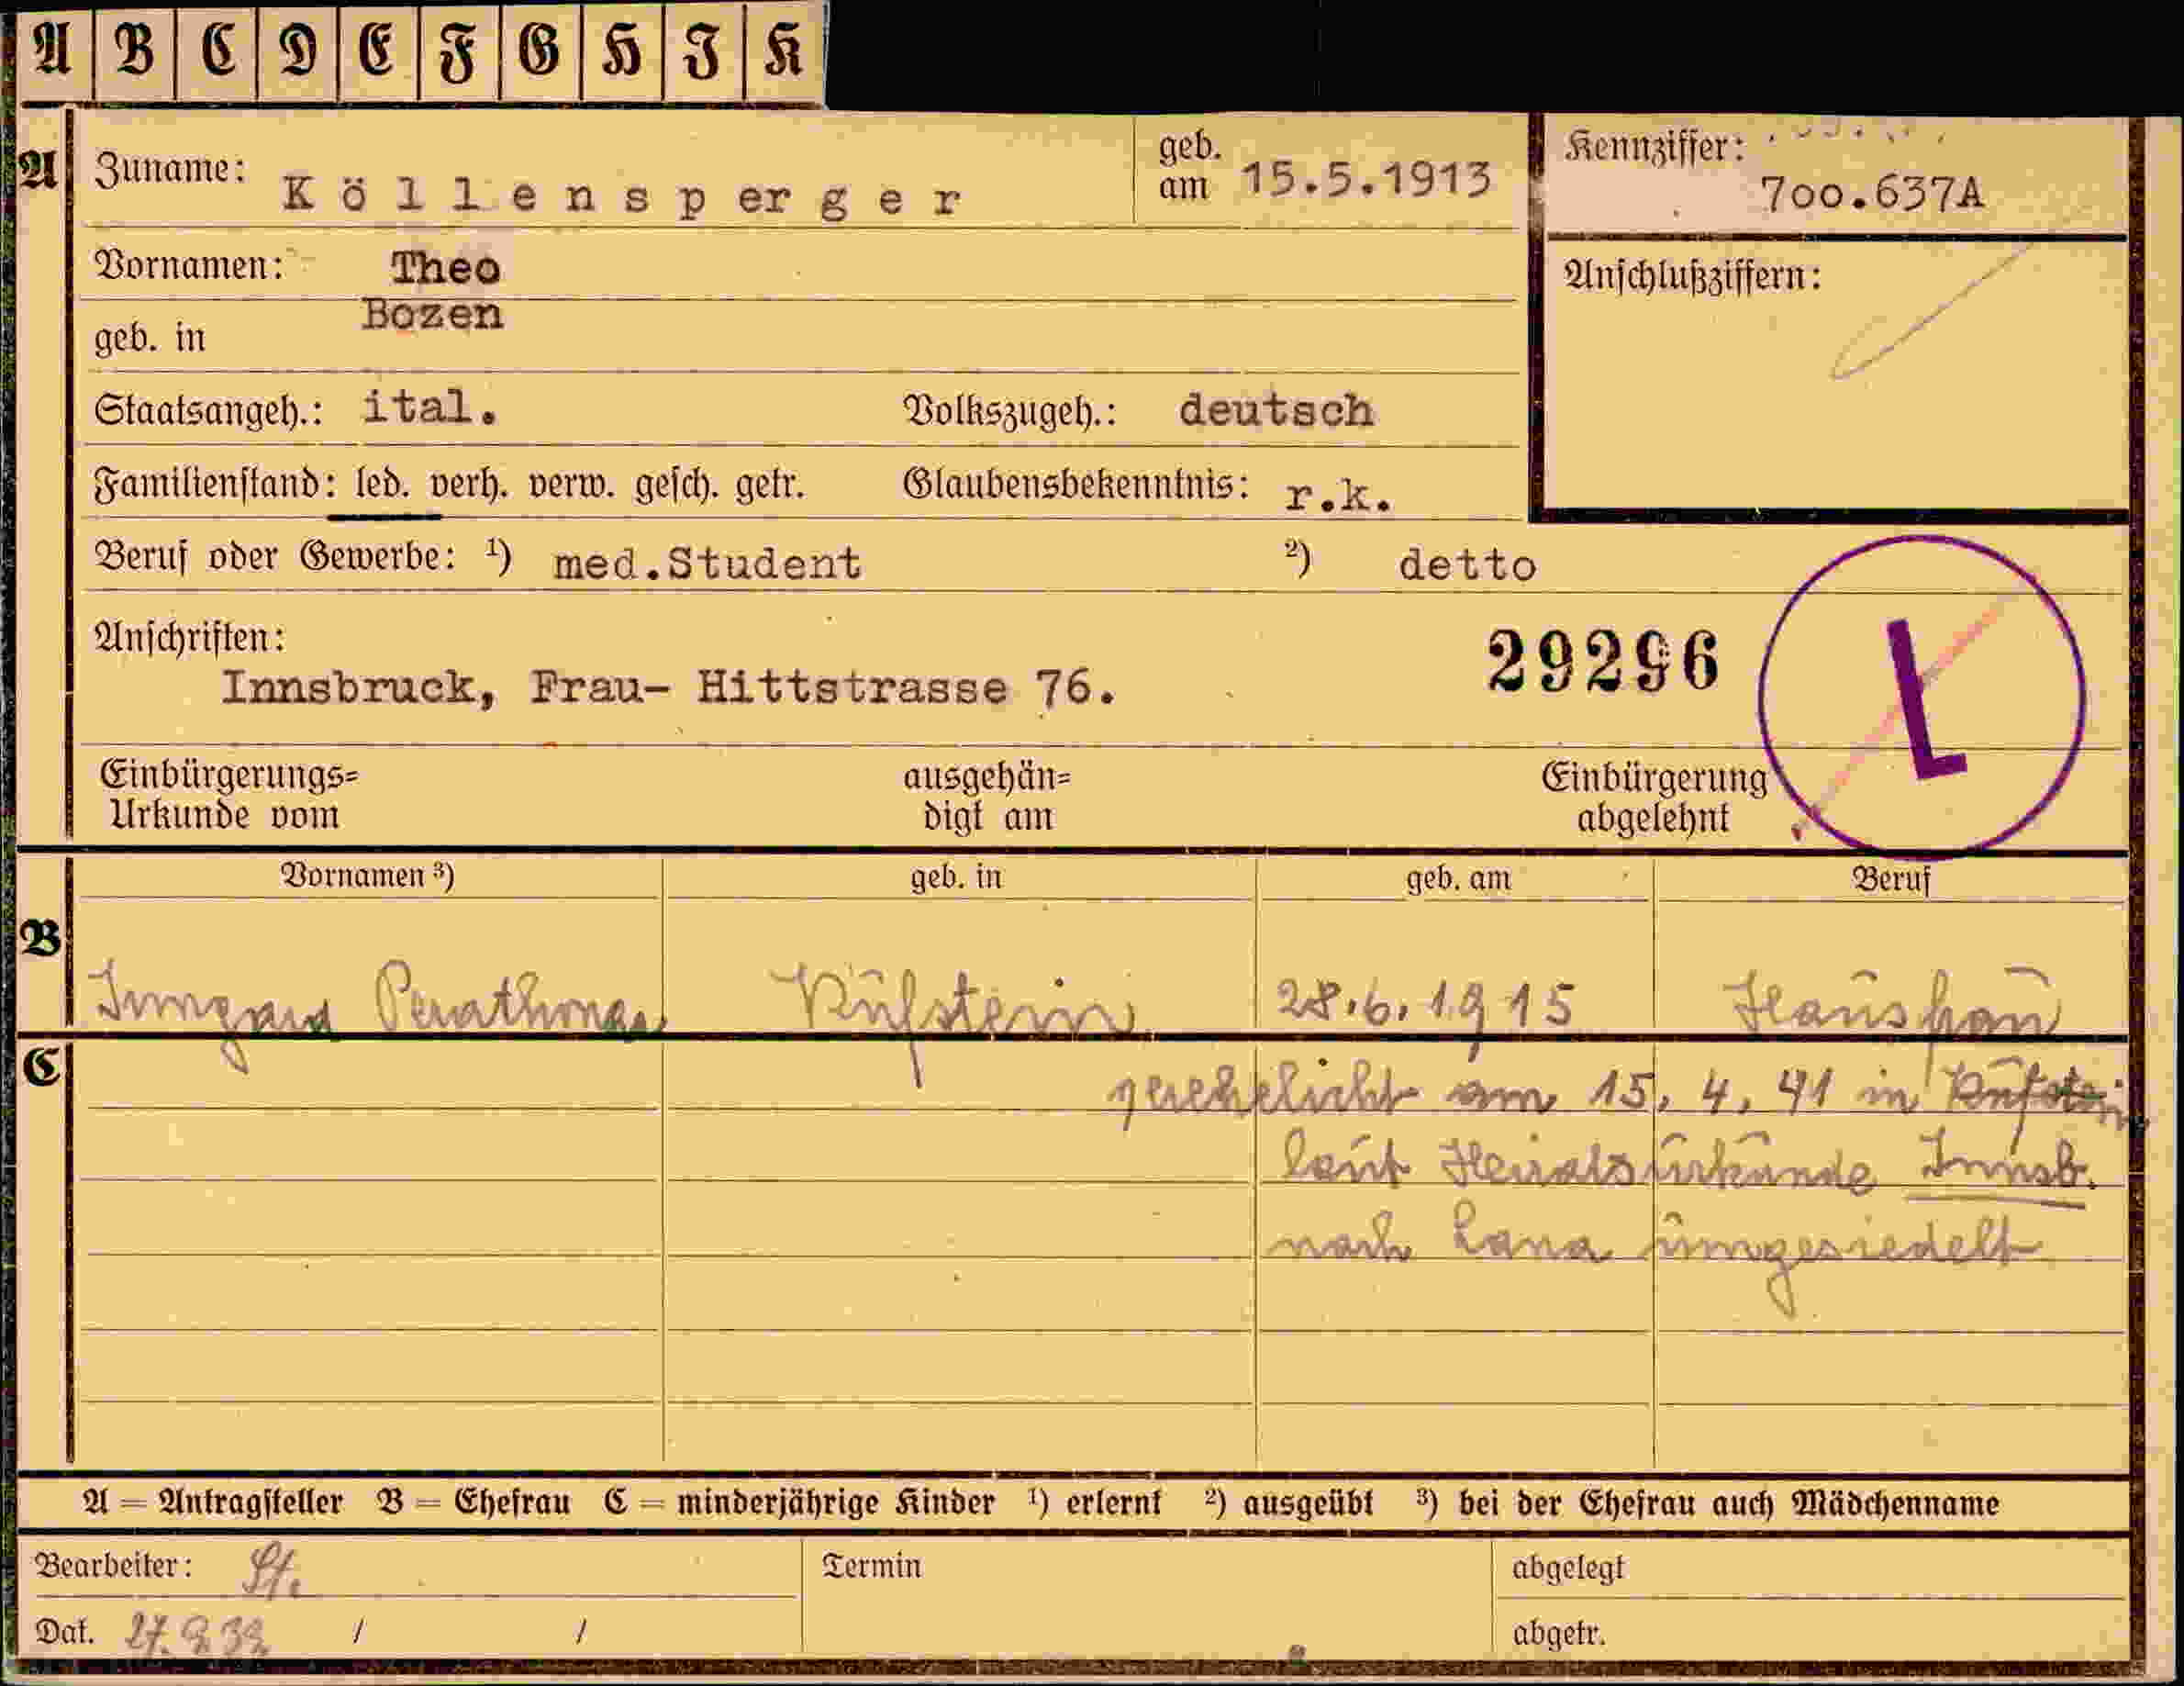 A B C D E F G H I K
A Zuname: Köllensperger geb. am 15.5.1913 Kennziffer: 7oo.637A
Vornamen: Theo
geb. in Bozen
Anschlußziffern:
Staatsangeh.: ital. Volkszugeh.: deutsch
Familienstand: led. verh. verw. gesch. getr. Glaubensbekenntnis: r.k.
Beruf oder Gewerbe: ¹) med.Student ²) detto
Anschriften:
29296 L
Innsbruck, Frau- Hittstrasse 76.
Einbürgerungs= ausgehän= Einbürgerung
Urkunde vom digt am abgelehnt
Vornamen ³) geb. in geb. am Beruf
B
Irmgard Perathoner Kufstein 28.6.1915 Hausfrau
C
verehelicht am 15. 4. 41 in Kufstein
laut Heiratsurkunde Innsb.
nach Lana umgesiedelt
A = Antragsteller B = Ehefrau C = minderjährige Kinder ¹) erlernt ²) ausgeübt ³) bei der Ehefrau auch Mädchenname
Bearbeiter: St. Termin abgelegt
Dat. / / abgetr.